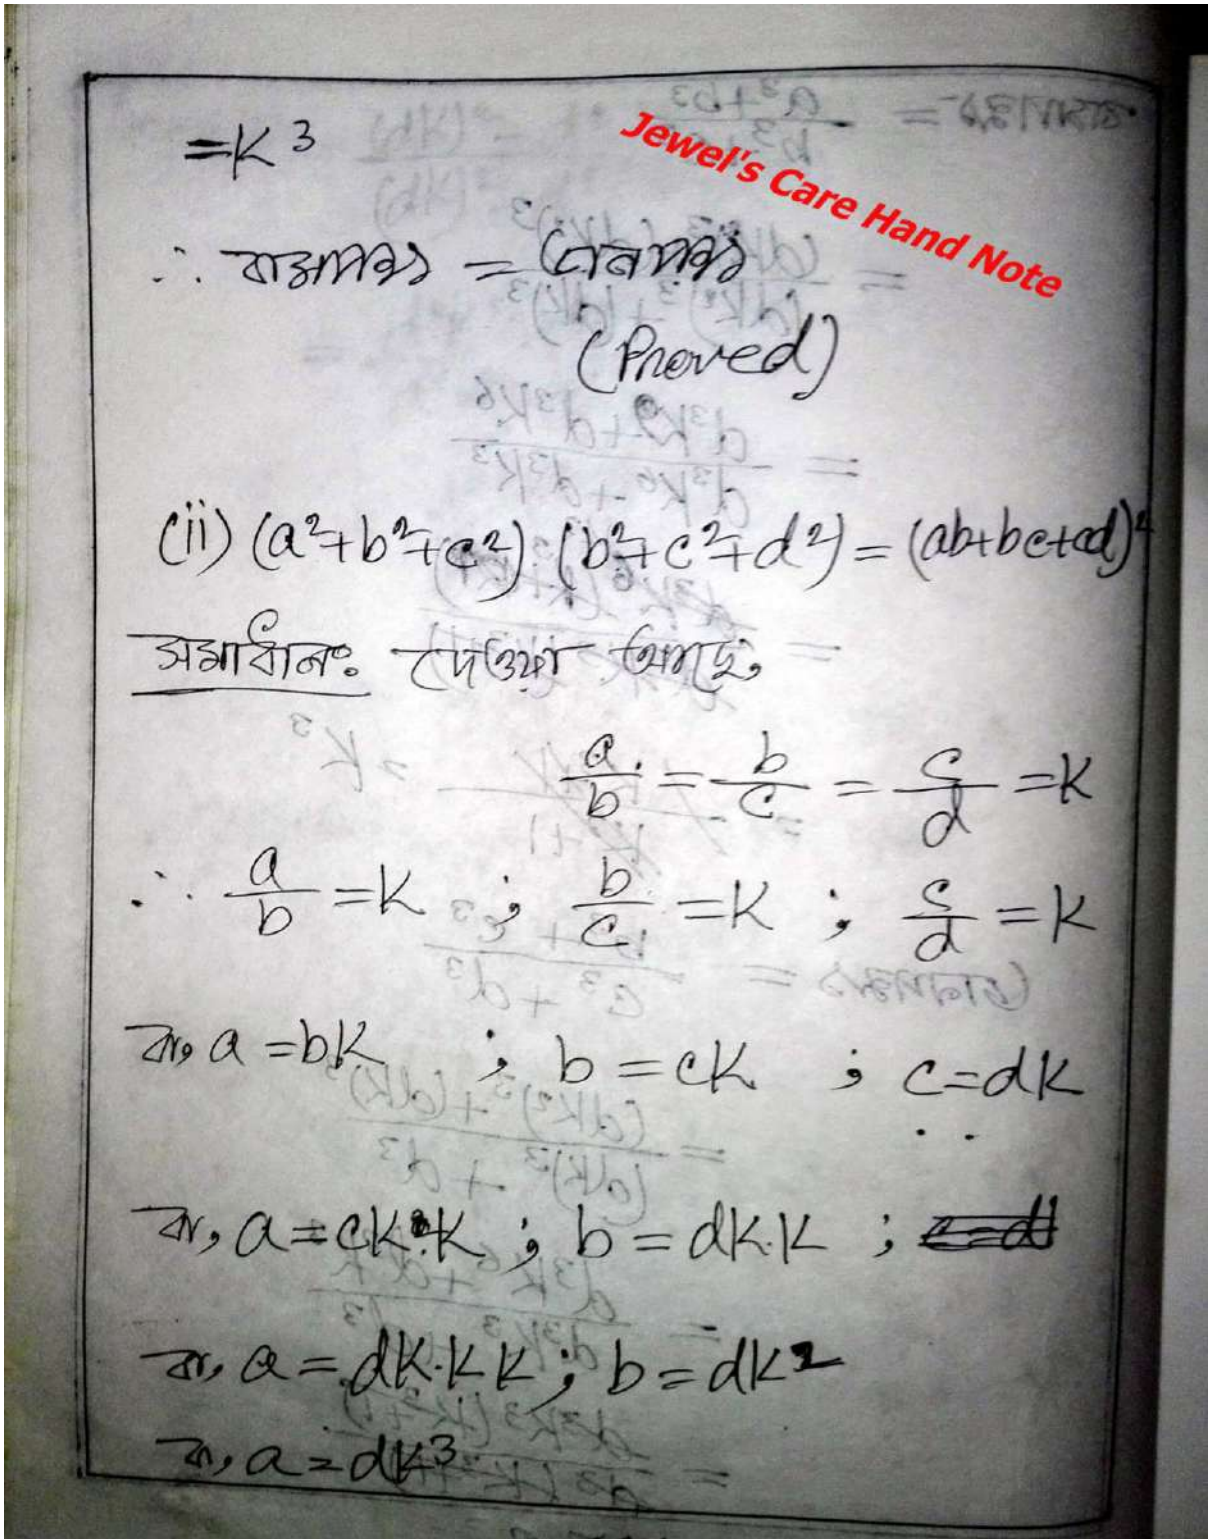 = K³
Jewel's Care Hand Note
∴ বামপক্ষ = ডানপক্ষ
(Proved)
(ii) (a²+b²+c²) (b²+c²+d²) = (ab+bc+cd)²
সমাধানঃ দেওয়া আছে,
a/b = b/c = c/d = K
∴ a/b = K ; b/c = K ; c/d = K
বা, a = bK ; b = cK ; c = dK
বা, a = cK.K ; b = dK.K ;
বা, a = dK.K K ; b = dK²
বা, a = dK³